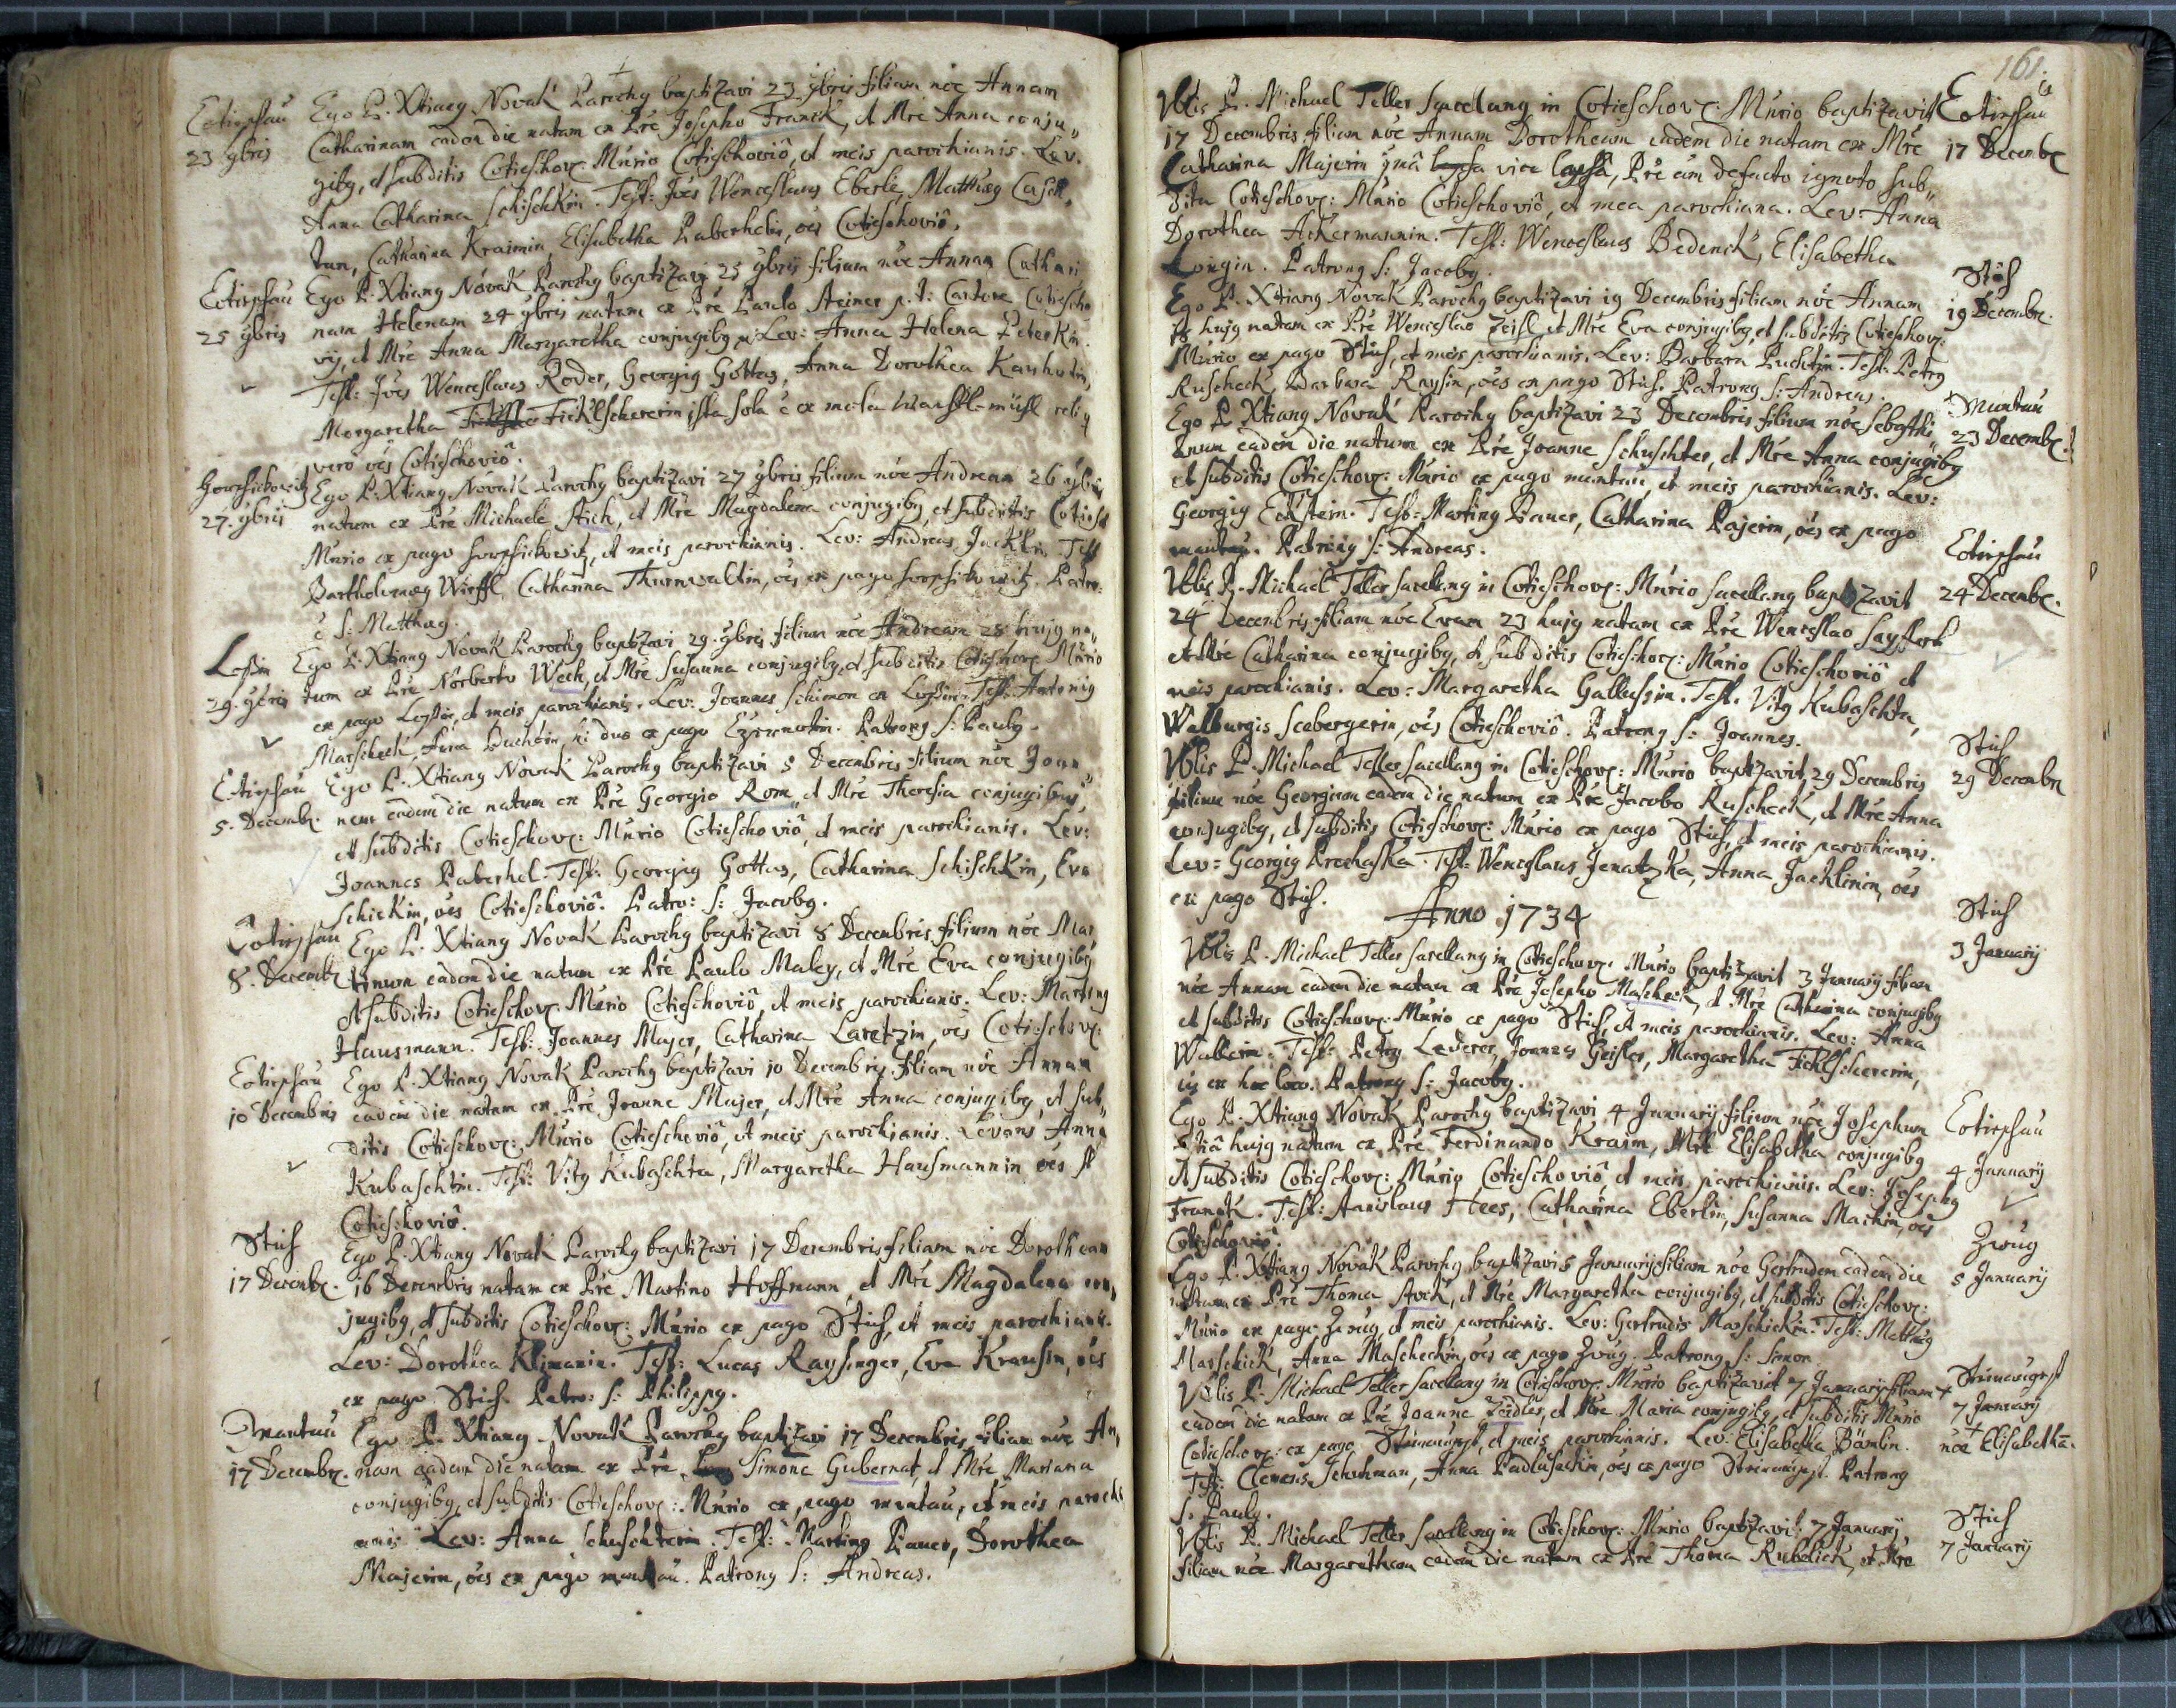 Cotieschau Ego P. Xtiang Novak Parochg baptizavi 23 9bris filiam nõe Annam
23 9bris Catharinam eadem die natam ex Pr̃e Josepho Franck, et Mr̃e Anna conju„
gibg, et subditis Cotieschov: Mũrio Cotieschoviô, et meis parochianis. Lev:
Anna Catharina Schischkin. Test: Jves Wenceslaus Eberle, Matthæg
Catharina Kraimin, Elisabetha Paberhelin, oẽs Cotieschoviô.
Cotieschau Ego P. Xtiang Novak Parochg baptizavi 25 9bris filiam nõe Annam Cathari
25 9bris nam Helenam 24 9bris natam ex Pr̃e Paulo Steiner p. t: Cantore Cotiescho
vij, et Mr̃e Anna Margaretha conjugibg Lev: Anna Helena Peterkin.
Test: Jves Wenceslaus Roder, Georgig Gottas, Anna Dorothea
Margaretha Ficklschererin ista sola ẽ ex mola reliq
vero oẽs Cotieschoviô.
27. 9bris Ego P. Xtiang Novak Parochg baptizavi 27 9bris filium nõe Andream 26 9bris
natum ex Pr̃e Michaele Stich, et Mr̃e Magdalena conjugibg, et subditis Cotiesch
Mũrio ex pago et meis parochianis. Lev: Andreas Jacklin. Test
Bartholomæg Wirffl, Catharina Thurnwaldin, oẽs ex pago Patro:
ẽ S: Matthæg.
Lossin Ego P. Xtiang Novak Parochg baptizavi 29. 9bris filium nõe Andream 28 hujg na„
29. 9bris tum ex Pr̃e Norberto Weck, et Mr̃e Susanna conjugibg, et subditis Cotieschov: Mũrio
ex pago Lossin, et meis parochianis. Lev: Joannes Schimon ex Lossin. Test: Antonig
Marscheck, Buchtin, hi duo ex pago Czernotin. Patrong S: Paulg.
Cotieschau Ego P. Xtiang Novak Parochg baptizavi 5 Decembris filium nõe Joan
5. Decembr. nem eadem die natum ex Pr̃e Georgio Rom, et Mr̃e Theresia conjugibus,
et subditis Cotieschov: Mũrio Cotieschoviô, et meis parochianis. Lev:
Joannes Paberhel. Test: Georgig Gottas, Catharina Schischkin, Eva
Schickin, oẽs Cotieschoviô. Patro: S: Jacobg.
Cotieschau Ego P. Xtiang Novak Parochg baptizavi 8 Decembris filium nõe Mar
8. Decemb: tinum eadem die natum ex Pr̃e Paulo Maley, et Mr̃e Eva conjugibg
et subditis Cotieschov: Mũrio Cotieschoviô, et meis parochianis. Lev: Marting
Hausmann. Test: Joannes Majer, Catharina Laretzin, oẽs Cotieschov:
Cotieschau Ego P. Xtiang Novak Parochg baptizavi 10 Decembris filiam nõe Annam
10 Decembris eadem die natam ex Pr̃e Joanne Majer, et Mr̃e Anna conjugibg, et sub„
ditis Cotieschov: Mũrio Cotieschoviô, et meis parochianis. Levans Anna
Kubaschtin. Test: Vitg Kubaschta, Margaretha Hausmannin oẽs
Cotieschoviô.
Stich Ego P. Xtiang Novak Parochg baptizavi 17 Decembris filiam nõe Dorotheam
17 Decemb: 16 Decembris natam ex Pr̃e Martino Hoffmann, et Mr̃e Magdalena con„
jugibg, et subditis Cotieschov: Mũrio ex pago Stich, et meis parochianis.
Lev: Dorothea Klimanin. Test: Lucas Raysinger, Eva Krausin, oẽs
ex pago Stich. Patro: S: Philippg.
Mantau Ego P. Xtiang Novak Parochg baptizavi 17 Decembris filiam nõe An„
17 Decembr. nam eadem die natam ex Pr̃e Simone Gubernat, et Mr̃e Mariana
conjugibg, et subditis Cotieschov: Mũrio ex pago mantau, et meis parochi
anis. Lev: Anna Schuschterin. Test: Marting Pauer, Dorothea
Majerin, oẽs ex pago mantau. Patrong S: Andreas.
161.
Vblis P. Michael Teller Sacellang in Cotieschov: Mũrio baptizavit Cotieschau
17 Decembris filiam nõe Annam Dorotheam eadem die natam ex Mr̃e 17 Decemb:
Catharina Majerin vice lapsâ, Pr̃e defacto ignoto sub„
dita Cotieschov: Mũrio Cotieschoviô, et mea parochiana. Lev: Anna
Dorothea Ackermannin. Test: Wenceslaus Bedenck, Elisabetha
Longin. Patrong S: Jacobg. Stich
Ego P. Xtiang Novak Parochg baptizavi 19 Decembris filiam nõe Annam 19 Decembr.
18 hujg natam ex Pr̃e Wenceslao Zeisl et Mr̃e Eva conjugibg, et subditis Cotieschov:
Mũrio ex pago Stich, et meis parochianis. Lev: Barbara Buchtin. Test: Petrg
Ruscheck, Barbara Raysin, oẽs ex pago Stich. Patrong S: Andreas. Mantau
Ego P. Xtiang Novak Parochg baptizavi 23 Decembris filium nõe Sebasthi„ 23 Decemb:
anum eadem die natum ex Pr̃e Joanne Schuschter, et Mr̃e Anna conjugibg
et subditis Cotieschov: Mũrio ex pago mantau, et meis parochianis. Lev:
Georgig Eckstein. Test: Marting Pauer, Catharina Pajerin, oẽs ex pago
mantau. Patrong S: Andreas. Cotieschau
Vblis P. Michael Teller Sacellang in Cotieschov: Mũrio Sacellang baptizavit 24 Decemb:
24 Decembris filiam nõe Evam 23 hujg natam ex Pr̃e Wenceslao Sayffert
et Mr̃e Catharina conjugibg, et subditis Cotieschov: Mũrio Cotieschoviô et
meis parochianis. Lev: Margaretha Gallussin. Test. Vitg Kubaschta,
Walburgis Seebergerin, oẽs Cotieschoviô. Patrong S: Joannes. Stich
Vblis P. Michael Teller Sacellang in Cotieschov: Mũrio baptizavit 29 Decembris 29 Decembr
filium nõe Georgium eadem die natum ex Pr̃e Jacobo Ruscheck, et Mr̃e Anna
conjugibg, et subditis Cotieschov: Mũrio ex pago Stich, et meis parochianis.
Lev: Georgig Prochaska. Test: Wenceslaus Jenatzka, Anna Jacklinin, oẽs
ex pago Stich.
Anno 1734 Stich
Vblis P. Michael Teller Sacellang in Cotieschov: Mũrio baptizavit 3 Januarij filiam 3 Januarij
nõe Annam eadem die natam ex Pr̃e Josepho Mascheck, et Mr̃e Catharina conjugibg
et subditis Cotieschov: Mũrio ex pago Stich, et meis parochianis. Lev: Anna
Walterin. Test: Petrg Lederer, Joannes Geisler, Margaretha Ficklschererin,
ex hoc loco. Patrong S: Jacobg.
Ego P. Xtiang Novak Parochg baptizavi 4 Januarij filium nõe Josephum Cotieschau
3tiâ hujg natum ex Pr̃e Ferdinando Kraim, Mr̃e Elisabetha conjugibg 4 Januarij
et subditis Cotieschov: Mũrio Cotieschoviô, et meis parochianis. Lev: Josephg
Franck. Test: Stanislaus Hees, Catharina Eberlin, Susanna Machin, oẽs
Cotieschoviô. Zwug
Ego P. Xtiang Novak Parochg baptizavi 5 Januarij filiam nõe Gertrudem eadem die 5 Januarij
natam ex Pr̃e Thoma Stich, et Mr̃e Margaretha conjugibg, et subditis Cotieschov:
Mũrio ex pago Zwug, et meis parochianis. Lev: Gertrudis Marschickin. Test: Matthæg
Marschick, Anna Mascheckin, oẽs ex pago Zwug. Patrong S: Simon.
Vblis P. Michael Teller Sacellang in Cotieschov: Mũrio baptizavit 7 Januarij filiam + Steinaugezt
eadem die natam ex Pr̃e Joanne Zeidler, et Mr̃e Maria conjugibg, et subditis Mũrio 7 Januarij
Cotieschov: ex pago et meis parochianis. Lev: Elisabetha Bömlin. + nõe Elisabethã.
Test: Clemens Schuhman, Anna oẽs ex pago Patrong
S. Paulg. Stich
Vblis P. Michael Teller Sacellang in Cotieschov: Mũrio baptizavit 7 Januarij 7 Januarij
filiam nõe Margaretham eadem die natam ex Pr̃e Thoma Rubelick, et Mr̃e